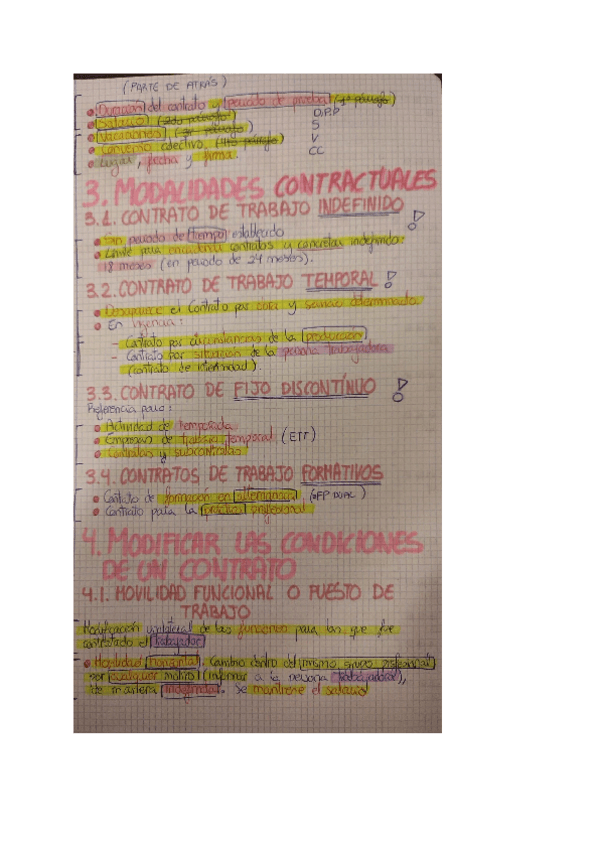 (PARTE DE ATRÁS)
• Duración del contrato y periodo de prueba (1º párrafo)
D.P.P
• Salario (2do párrafo)
S
• Vacaciones (3er párrafo)
V
• Convenio colectivo. (4to párrafo)
CC
• Lugar, fecha y firma.
3. MODALIDADES CONTRACTUALES
3.1. CONTRATO DE TRABAJO INDEFINIDO !
• Sin periodo de tiempo establecido
• Límite para encadenar contratos y concretar indefinido:
18 meses (en periodo de 24 meses).
3.2. CONTRATO DE TRABAJO TEMPORAL !
• Desaparece el Contrato por obra y servicio determinado
• En vigencia:
- Contrato por circunstancias de la producción
- Contrato por situación de la persona trabajadora
(contrato de interinidad).
3.3. CONTRATO DE FIJO DISCONTÍNUO !
Referencia para:
• Actividad de temporada
• Empresas de trabajo temporal (ETT)
• Contratas y subcontratas
3.4. CONTRATOS DE TRABAJO FORMATIVOS
• Contrato de formación en alternancia (FP DUAL)
• Contrato para la práctica profesional
4. MODIFICAR LAS CONDICIONES
DE UN CONTRATO
4.1. MOVILIDAD FUNCIONAL O PUESTO DE
TRABAJO
Modificación unilateral de las funciones para las que fue
contratado el trabajador
• Movilidad horizontal. Cambio dentro del mismo grupo profesional
por cualquier motivo (informar a la persona trabajadora),
de manera indefinida. Se mantiene el salario